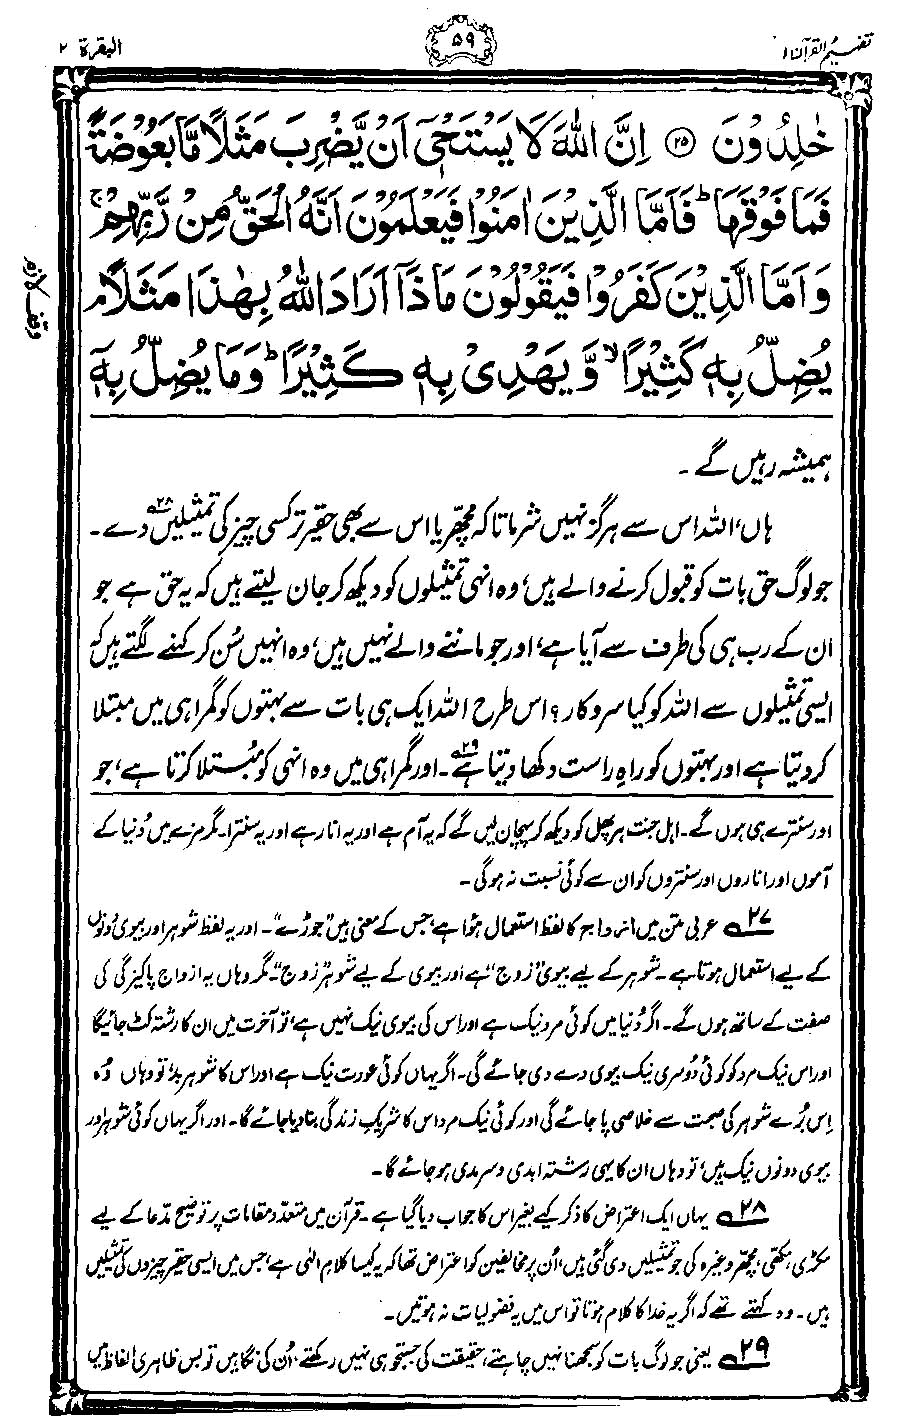 تفہیم القرآن ۱
۵۹
البقرۃ ۲
خٰلِدُوْنَ ﴿۲۵﴾ اِنَّ اللّٰهَ لَا يَسْتَحْيٖٓ اَنْ يَّضْرِبَ مَثَلًا مَّا بَعُوْضَةً
فَمَا فَوْقَهَا ؕ فَاَمَّا الَّذِيْنَ اٰمَنُوْا فَيَعْلَمُوْنَ اَنَّهُ الْحَقُّ مِنْ رَّبِّهِمْ ۚ
وَ اَمَّا الَّذِيْنَ كَفَرُوْا فَيَقُوْلُوْنَ مَاذَآ اَرَادَ اللّٰهُ بِهٰذَا مَثَلًا ۘ
وقف لازم
يُضِلُّ بِهٖ كَثِيْرًا ۙ وَّ يَهْدِىْ بِهٖ كَثِيْرًا ؕ وَمَا يُضِلُّ بِهٖٓ
ہمیشہ رہیں گے۔
ہاں، اللہ اس سے ہرگز نہیں شرماتا کہ مچھّر یا اس سے بھی حقیر تر کسی چیز کی تمثیلیں دے۲۸۔
جو لوگ حق بات کو قبول کرنے والے ہیں، وہ انہی تمثیلوں کو دیکھ کر جان لیتے ہیں کہ یہ حق ہے جو
ان کے رب ہی کی طرف سے آیا ہے، اور جو ماننے والے نہیں ہیں، وہ انہیں سُن کر کہنے لگتے ہیں کہ
ایسی تمثیلوں سے اللہ کو کیا سروکار؟ اس طرح اللہ ایک ہی بات سے بہتوں کو گمراہی میں مبتلا
کر دیتا ہے اور بہتوں کو راہِ راست دکھا دیتا ہے۲۹۔ اور گمراہی میں وہ انہی کو مبُتلا کرتا ہے، جو
اور سنترے ہی ہوں گے۔ اہلِ جنت ہر پھل کو دیکھ کر پہچان لیں گے کہ یہ آم ہے اور یہ انار ہے اور یہ سنترا۔ مگر مزے میں دُنیا کے
آموں اور اناروں اور سنتروں کو ان سے کوئی نسبت نہ ہوگی۔
۲۷ عربی متن میں ازواج کا لفظ استعمال ہُوا ہے، جس کے معنی ہیں ”جوڑے“۔ اور یہ لفظ شوہر اور بیوی دونوں
کے لیے استعمال ہوتا ہے۔ شوہر کے لیے بیوی ”زوج“ ہے اور بیوی کے لیے شوہر ”زوج“۔ مگر وہاں یہ ازواج پاکیزگی کی
صفت کے ساتھ ہوں گے۔ اگر دُنیا میں کوئی مرد نیک ہے اور اس کی بیوی نیک نہیں ہے، تو آخرت میں ان کا رشتہ کٹ جائیگا
اور اس نیک مرد کو کوئی دُوسری نیک بیوی دے دی جائے گی۔ اگر یہاں کوئی عورت نیک ہے اور اس کا شوہر بد، تو وہاں وُہ
اِس بُرے شوہر کی صحبت سے خلاصی پا جائے گی اور کوئی نیک مرد اس کا شریکِ زندگی بنا دیا جائے گا۔ اور اگر یہاں کوئی شوہر اور
بیوی دونوں نیک ہیں، تو وہاں ان کا یہی رشتہ ابدی و سرمدی ہو جائے گا۔
۲۸ یہاں ایک اعتراض کا ذکر کیے بغیر اس کا جواب دیا گیا ہے۔ قرآن میں متعدّد مقامات پر توضیحِ مدّعا کے لیے
مکڑی، مکھّی، مچھّر وغیرہ کی جو تمثیلیں دی گئی ہیں، اُن پر مخالفین کو اعتراض تھا کہ یہ کیسا کلامِ الٰہی ہے، جس میں ایسی حقیر چیزوں کی تمثیلیں
ہیں۔ وہ کہتے تھے کہ اگر یہ خدا کا کلام ہوتا تو اس میں یہ فضولیات نہ ہوتیں۔
۲۹ یعنی جو لوگ بات کو سمجھنا نہیں چاہتے، حقیقت کی جستجو ہی نہیں رکھتے، اُن کی نگاہیں تو بس ظاہری الفاظ میں